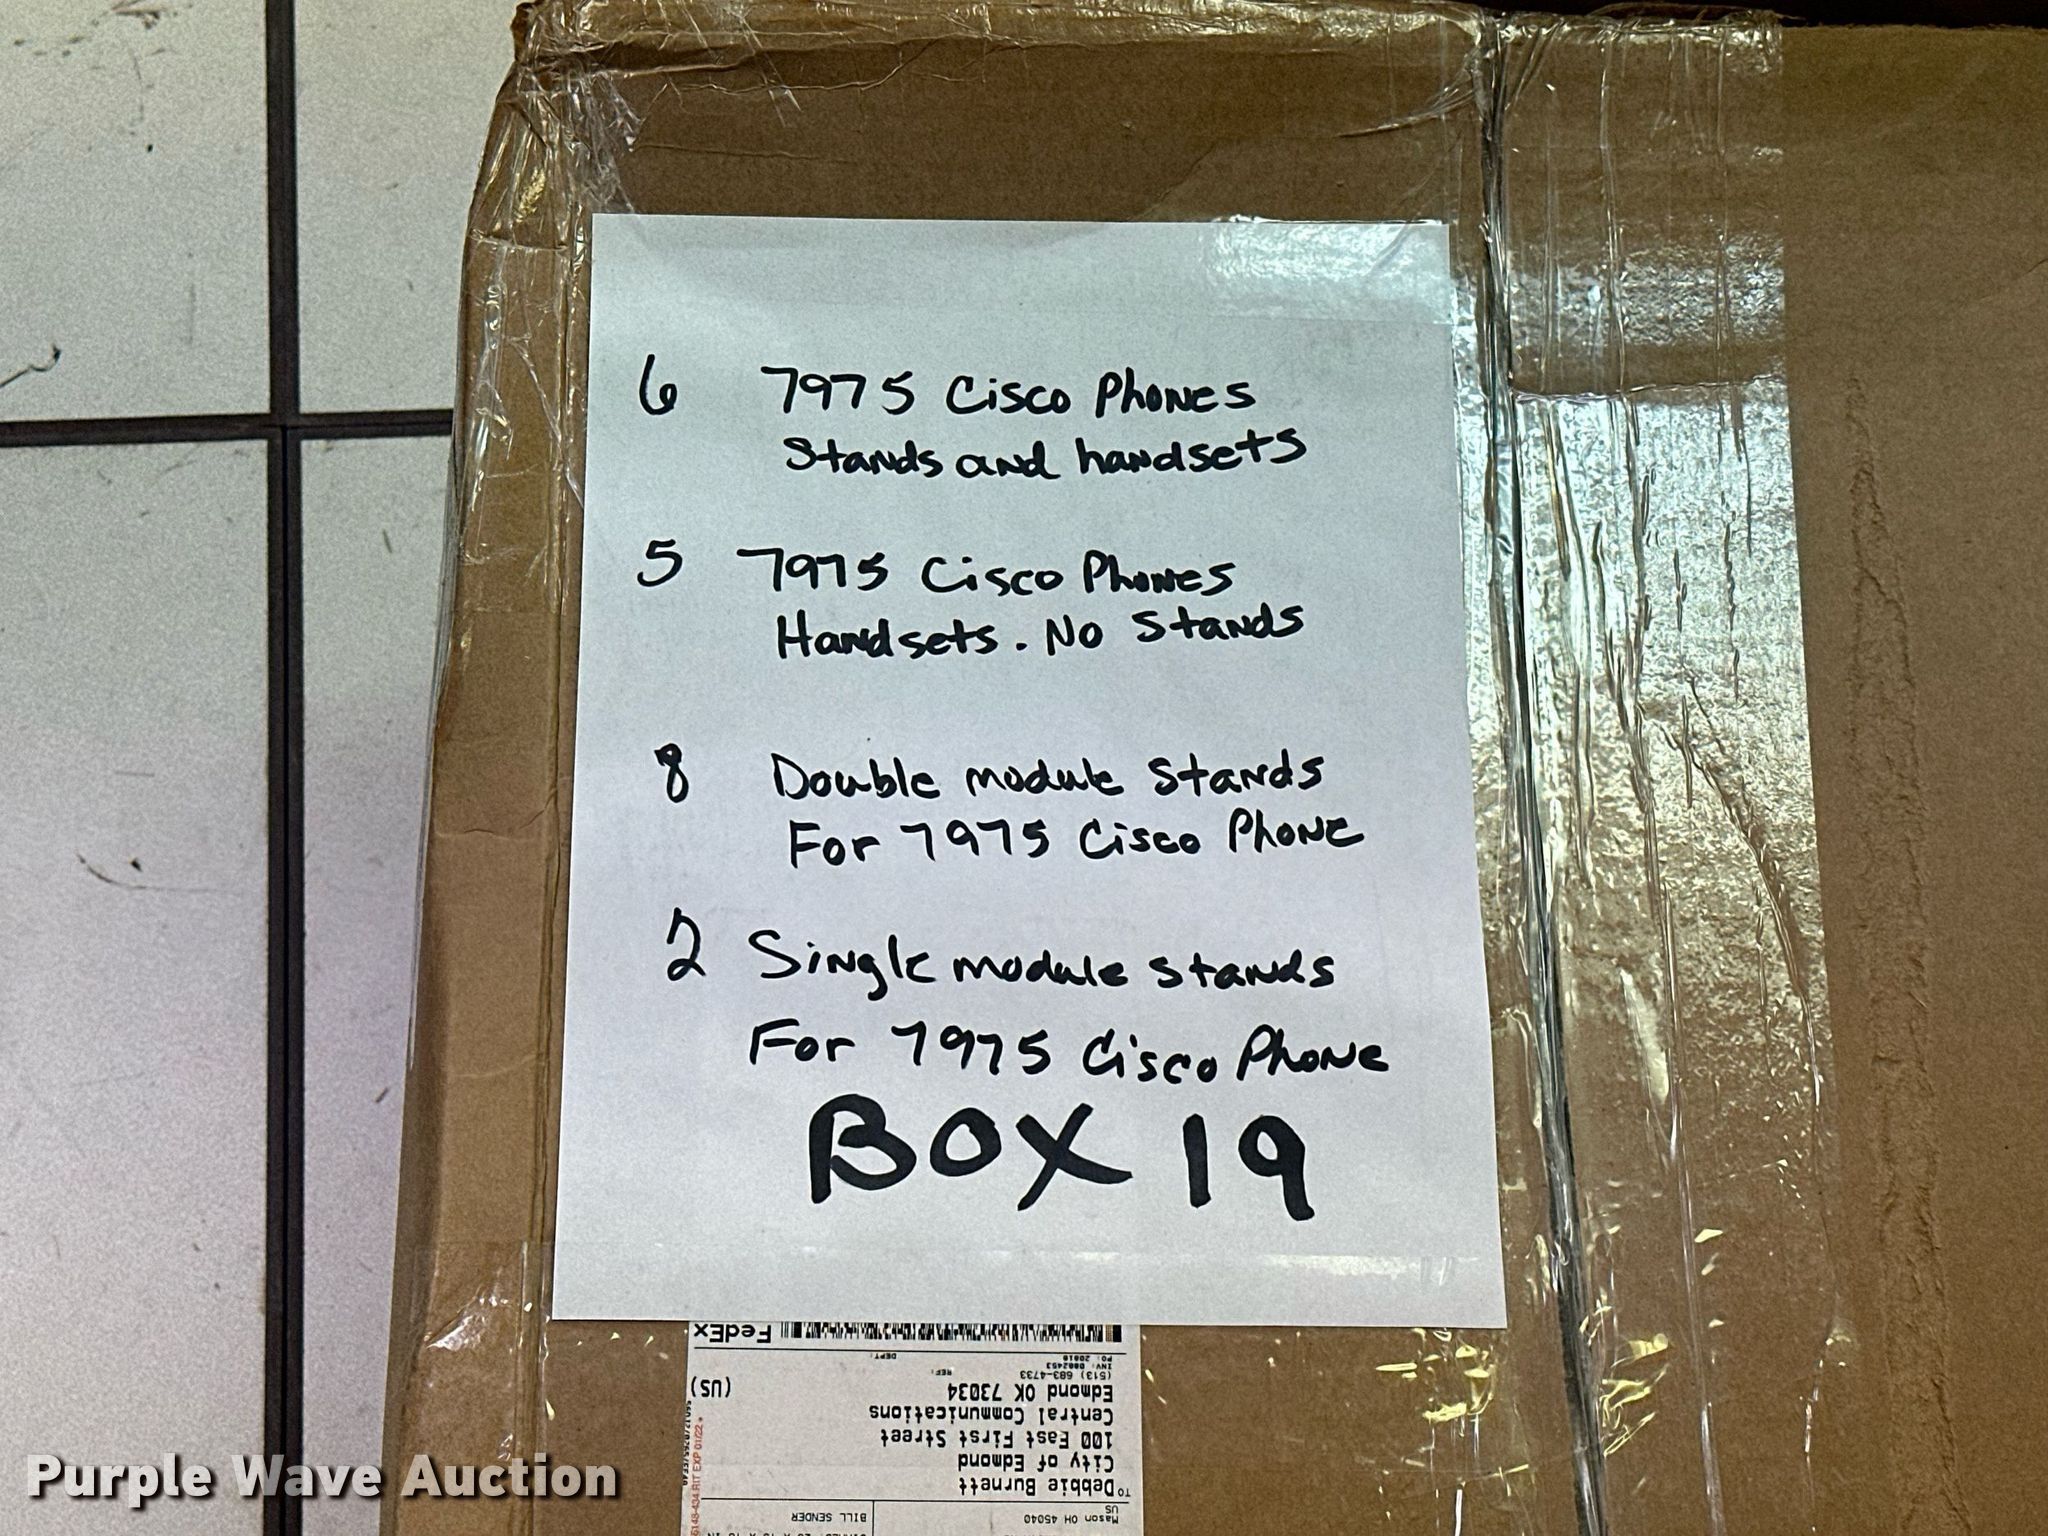 6 7975 Cisco Phones
Stands and handsets
5 7975 Cisco Phones
Handsets. No Stands
8 Double module Stands
For 7975 Cisco Phone
2 Single module stands
For 7975 Cisco Phone
BOX 19
FedEx
PO: 20810 DEPT:
INV: 0082453
(513) 683-4733 REF:
Edmond OK 73034 (US)
Central Communications
100 East First Street
City of Edmond
TO Debbie Burnett
US
Mason OH 45040
BILL SENDER
RIT EXP 01/22
Purple Wave Auction